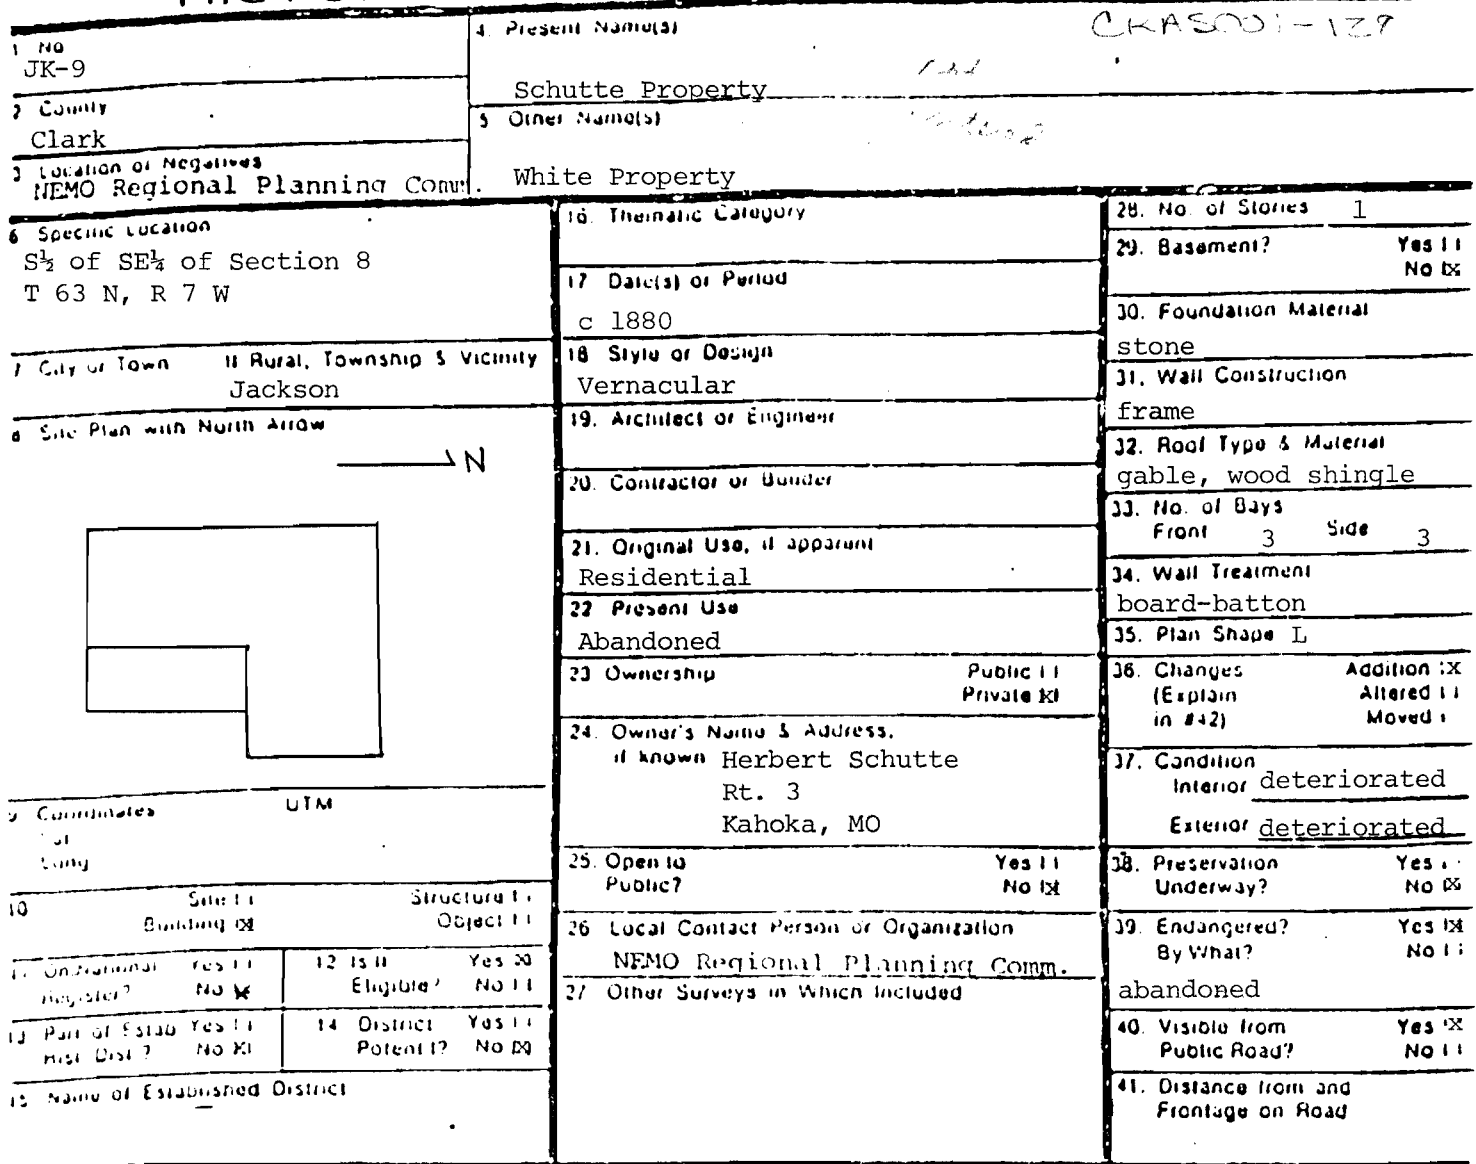 1 No
JK-9
2 County
Clark
3 Location of Negatives
NEMO Regional Planning Comm.
4. Present Name(s)
Schutte Property
5 Other Name(s)
White Property
6 Specific Location
S½ of SE¼ of Section 8
T 63 N, R 7 W
7 City or Town If Rural, Township & Vicinity
Jackson
8 Site Plan with North Arrow
N
9 Coordinates UTM
Lat
Long
10 Site [ ] Structure [ ]
Building [x] Object [ ]
11 On National Yes [ ]
Register? No [x]
12 Is it Yes [x]
Eligible? No [ ]
13 Part of Estab Yes [ ]
Hist. Dist.? No [x]
14 District Yes [ ]
Potent'l? No [x]
15 Name of Established District
16. Thematic Category
17 Date(s) or Period
c 1880
18 Style or Design
Vernacular
19. Architect or Engineer
20. Contractor or Builder
21. Original Use, if apparent
Residential
22 Present Use
Abandoned
23 Ownership Public [ ]
Private [x]
24. Owner's Name & Address,
if known Herbert Schutte
Rt. 3
Kahoka, MO
25. Open to Yes [ ]
Public? No [x]
26 Local Contact Person or Organization
NEMO Regional Planning Comm.
27 Other Surveys in Which Included
28. No. of Stories 1
29. Basement? Yes [ ]
No [x]
30. Foundation Material
stone
31. Wall Construction
frame
32. Roof Type & Material
gable, wood shingle
33. No. of Bays
Front 3 Side 3
34. Wall Treatment
board-batton
35. Plan Shape L
36. Changes Addition [x]
(Explain Altered [ ]
in #42) Moved [ ]
37. Condition
Interior deteriorated
Exterior deteriorated
38. Preservation Yes [ ]
Underway? No [x]
39. Endangered? Yes [x]
By What? No [ ]
abandoned
40. Visible from Yes [x]
Public Road? No [ ]
41. Distance from and
Frontage on Road